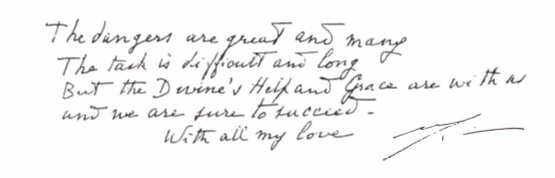 The dangers are great and many
The task is difficult and long
But the Divine's Help and Grace are with us
and we are sure to succeed -
With all my love